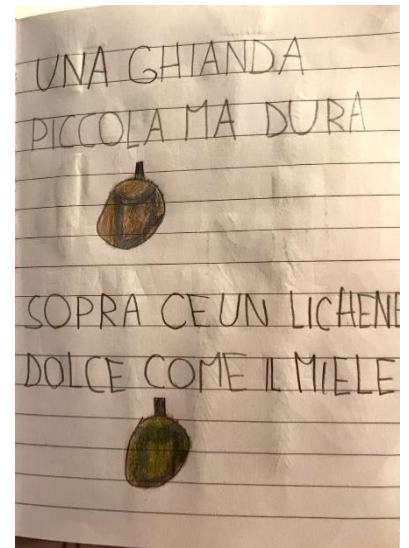 UNA GHIANDA
PICCOLA MA DURA
SOPRA CE UN LICHENE
DOLCE COME IL MIELE